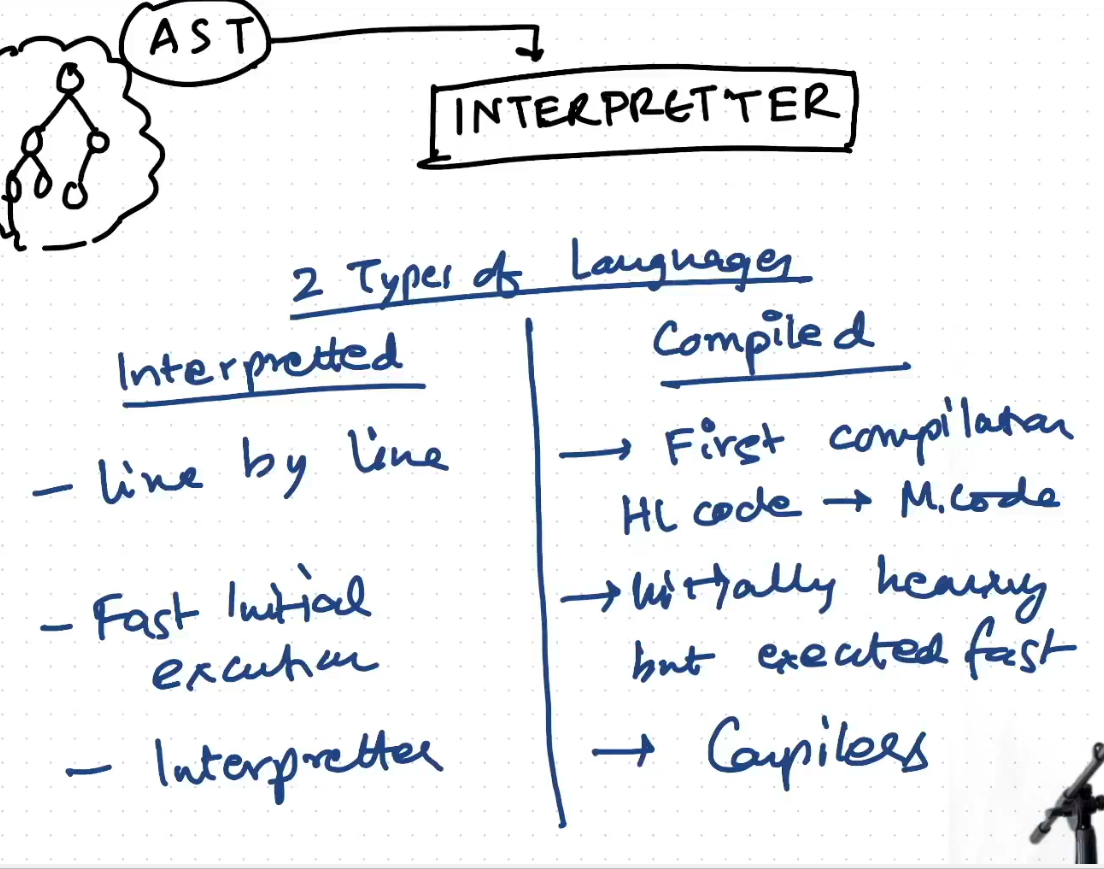 AST
INTERPRETTER
2 Types of Languages
Interpretted
- line by line
- Fast Initial
execution
- Interpretter
Compiled
→ First compilation
HL code → M.code
→ Initially heavy
but executed fast
→ Compilers